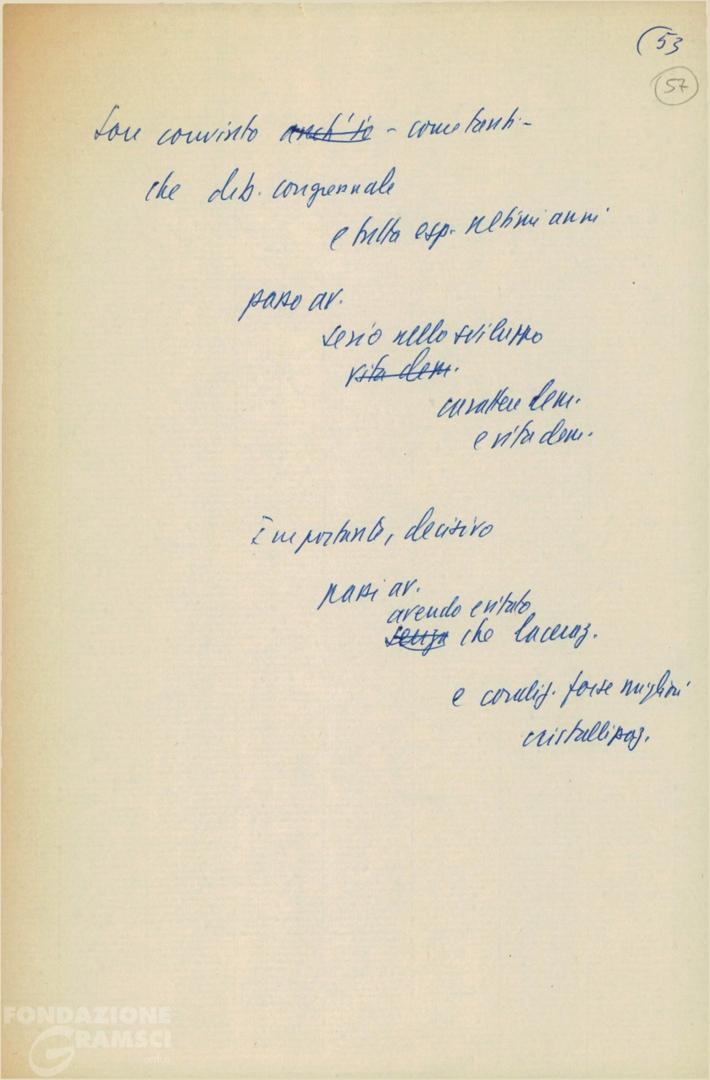 53
57
Son convinto anch'io - come tanti -
che dib. congressuale
e tutta esp. ultimi anni
passo av.
serio nello sviluppo
vita dem.
carattere dem.
e vita dem.
Importante, decisivo
passi av.
avendo evitato
senza che laceraz.
e condiz. forse migliori
cristallizzaz.
FONDAZIONE
GRAMSCI
onlus